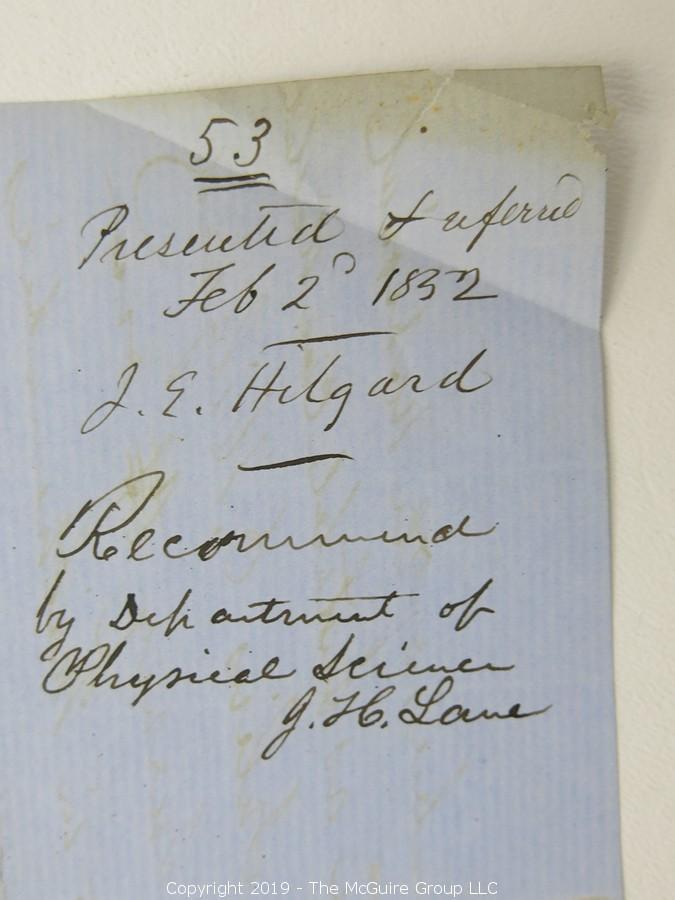 53
Presented & referred
Feb 2d 1852
J. E. Hilgard
Recommend
by Department of
Physical Science
J. H. Lane
Copyright 2019 - The McGuire Group LLC